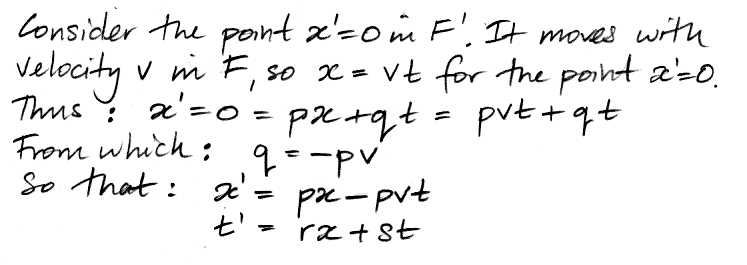 Consider the point x'=0 in F'. It moves with
velocity v in F, so x = vt for the point x'=0.
Thus : x'=0 = px+qt = pvt+qt
From which : q = -pv
So that : x' = px-pvt
t' = rx+st